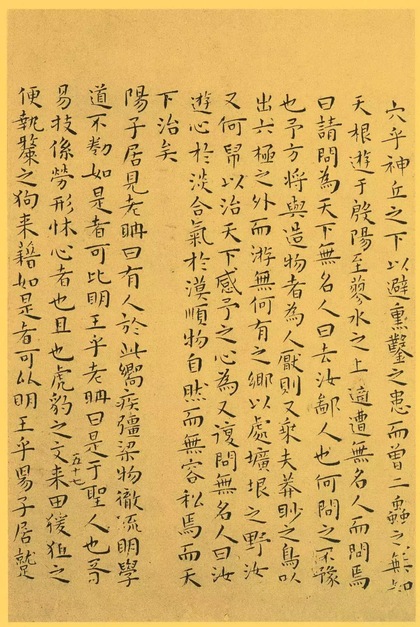 穴乎神丘之下以避熏鑿之患而曾二蟲之無知
天根遊于殷陽至蓼水之上適遭無名人而問焉
曰請問為天下無名人曰去汝鄙人也何問之不豫
也予方將與造物者為人厭則又乘夫莽眇之鳥以
出六極之外而游無何有之鄉以處壙垠之野汝
又何帠以治天下感予之心為又復問無名人曰汝
遊心於淡合氣於漠順物自然而無容私焉而天
下治矣
陽子居見老聃曰有人於此嚮疾彊梁物徹流明學
道不勌如是者可比明王乎老聃曰是于聖人也胥
五十七
易技係勞形怵心者也且也虎豹之文来田猨狙之
便執斄之狗来藉如是者可以明王乎陽子居蹵